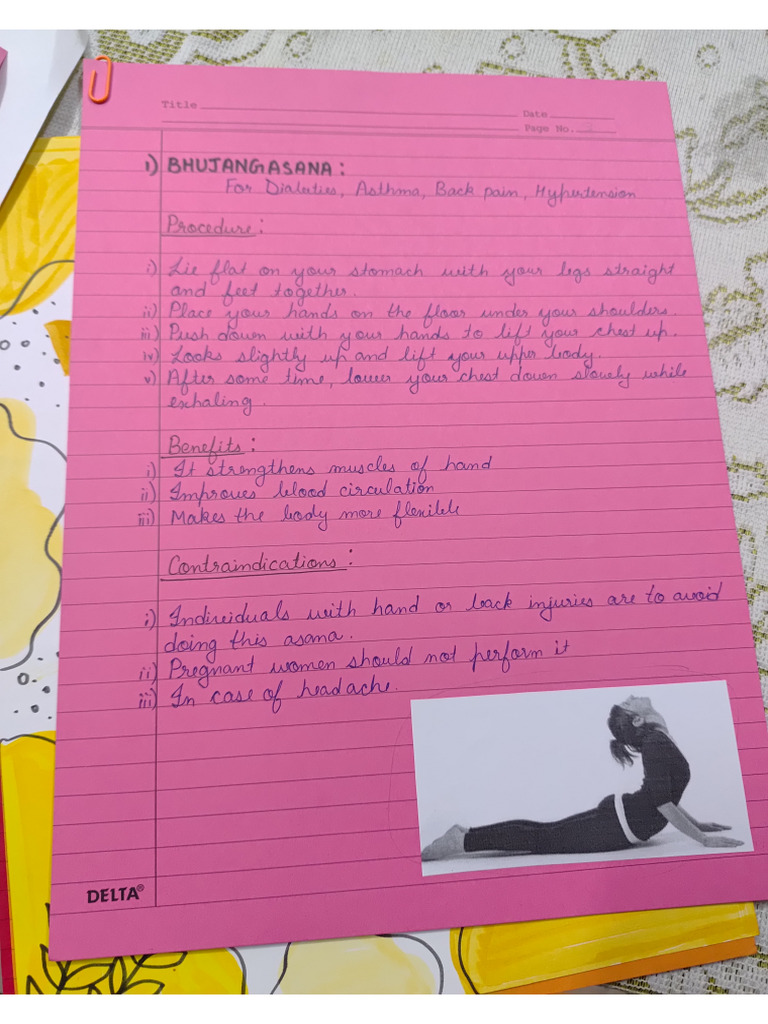 Title
Date
Page No. 3
i) BHUJANGASANA:
For Diabeties, Asthma, Back pain, Hypertension
Procedure:
i) Lie flat on your stomach with your legs straight
and feet together.
ii) Place your hands on the floor under your shoulders.
iii) Push down with your hands to lift your chest up.
iv) Looks slightly up and lift your upper body.
v) After some time, lower your chest down slowly while
exhaling.
Benefits:
i) It strengthens muscles of hand
ii) Improves blood circulation
iii) Makes the body more flexible
Contraindications:
i) Individuals with hand or back injuries are to avoid
doing this asana.
ii) Pregnant women should not perform it
iii) In case of headache.
DELTA®